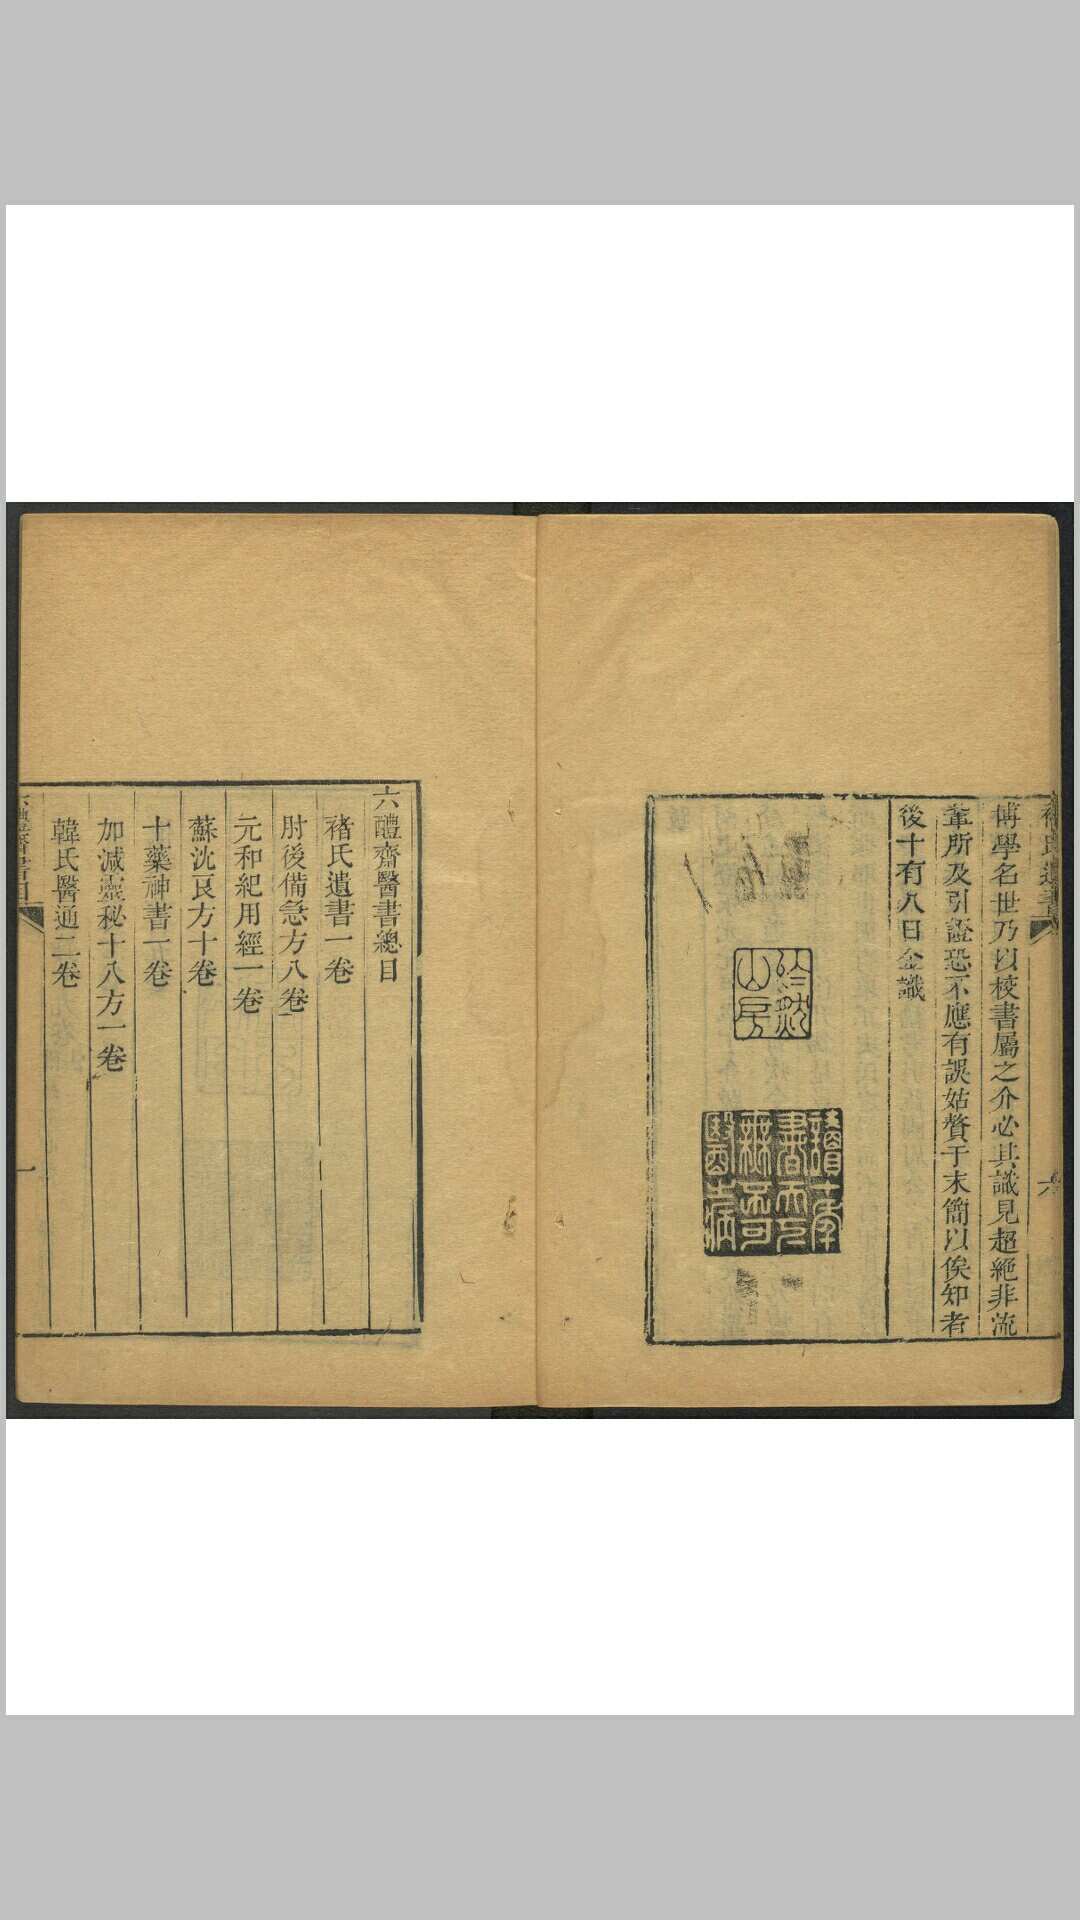 褚氏遺書
六
博學名世乃以校書屬之介必其識見超絶非流
輩所及引證恐不應有誤姑贅于末簡以俟知者
後十有八日金識
山房
讀十年
書而已
無不可
醫之病
六醴齋醫書總目
褚氏遺書一卷
肘後備急方八卷
元和紀用經一卷
蘇沈良方十卷
十藥神書一卷
加減靈秘十八方一卷
韓氏醫通二卷
一